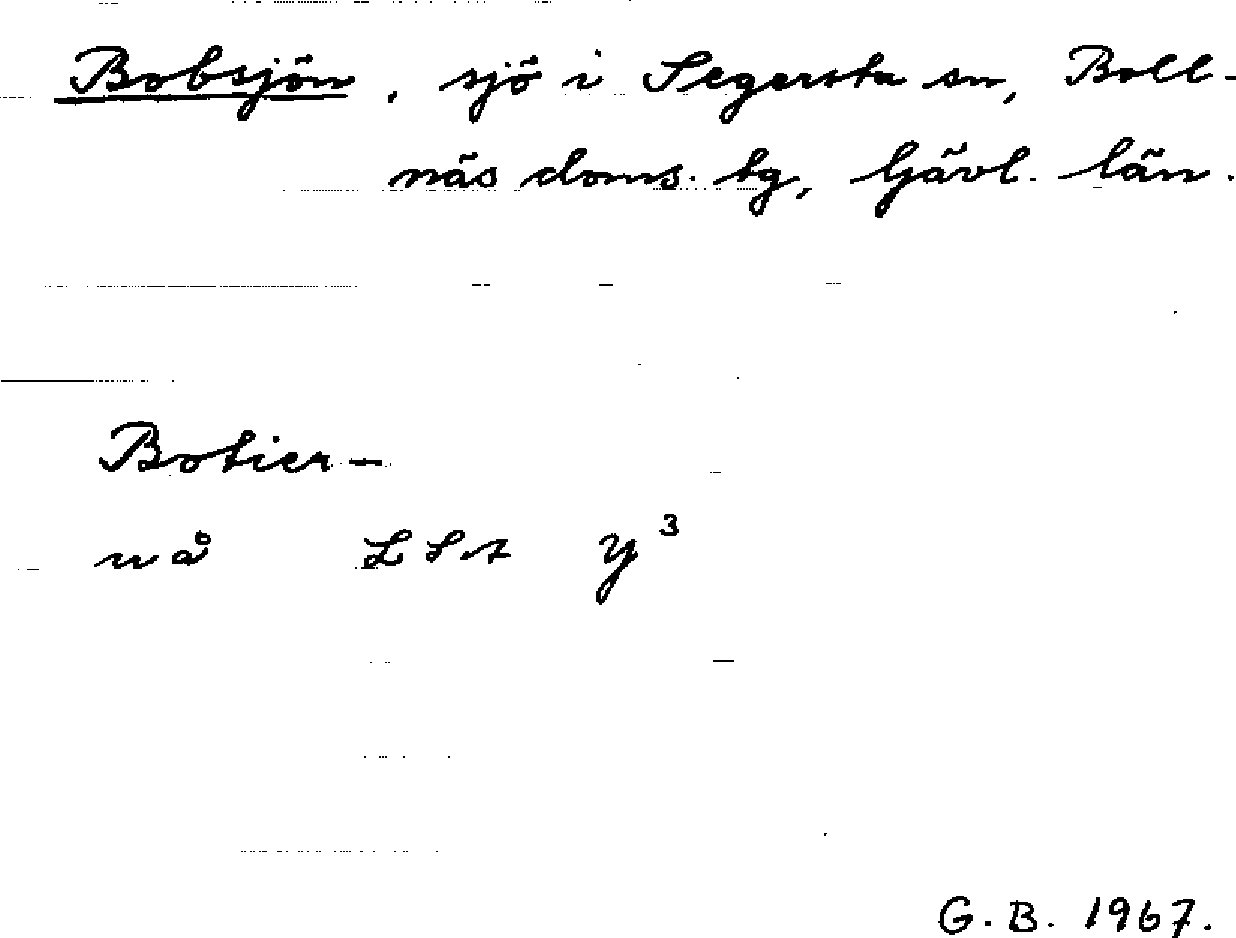 Bobsjön, sjö i Segersta sn, Boll-
näs doms. tg, Gävl. län.
Botier-
nå LSA y³
G. B. 1967.